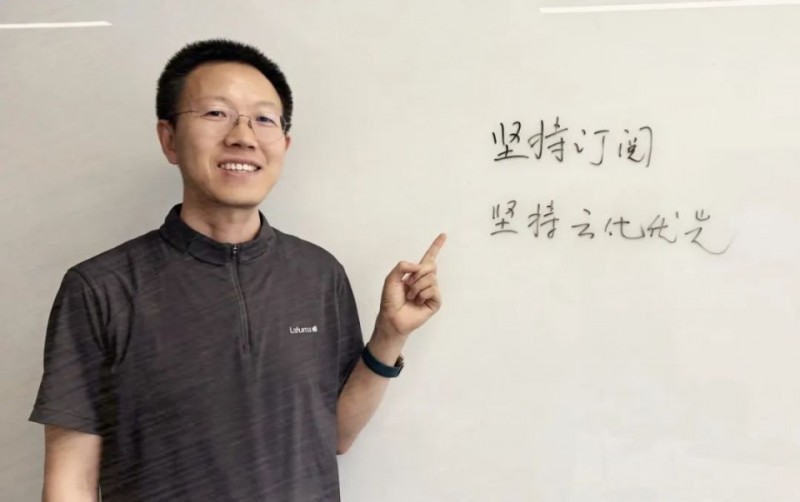 坚持订阅
坚持云化优先
Lafuma